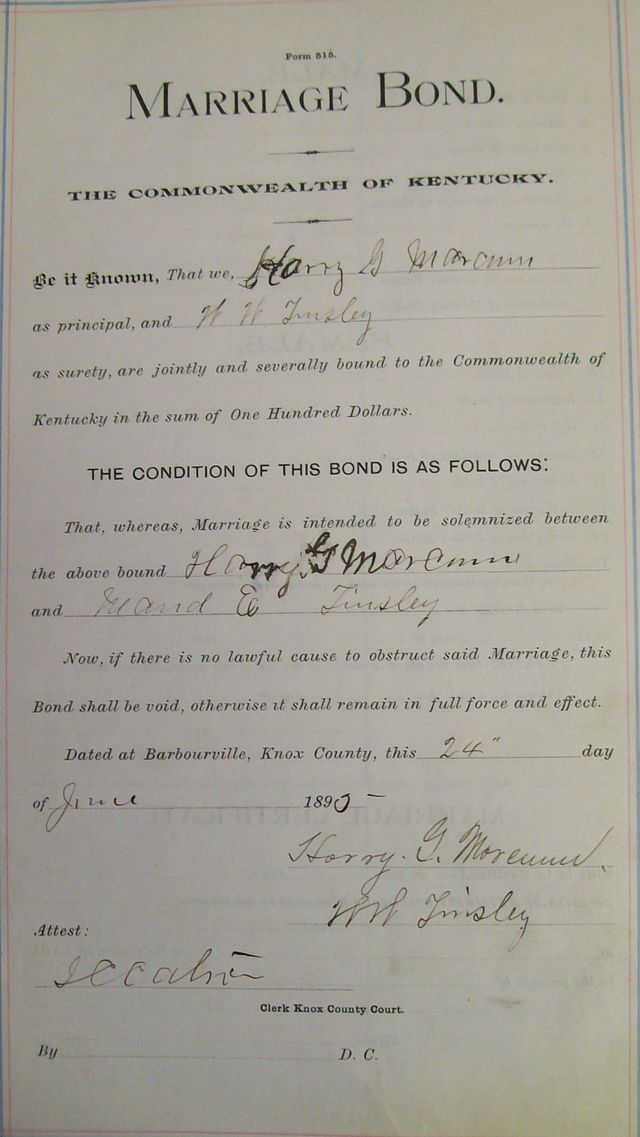 Form 515.
MARRIAGE BOND.
THE COMMONWEALTH OF KENTUCKY.
Be it Known, That we, Harry G
as principal, and W W Tinsley
as surety, are jointly and severally bound to the Commonwealth of
Kentucky in the sum of One Hundred Dollars.
THE CONDITION OF THIS BOND IS AS FOLLOWS:
That, whereas, Marriage is intended to be solemnized between
the above bound Harry G
and Maud E Tinsley
Now, if there is no lawful cause to obstruct said Marriage, this
Bond shall be void, otherwise it shall remain in full force and effect.
Dated at Barbourville, Knox County, this 24" day
of June 1895
Harry. G.
W W Tinsley
Attest:
Clerk Knox County Court.
By D. C.